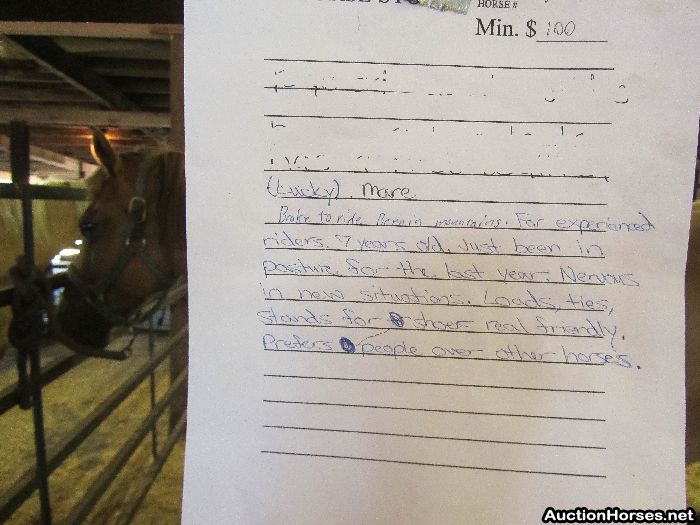 HORSE #
Min. $ 100
(Lucky) mare
Broke to ride. Been in mountains. For experienced
riders. 7 years old. Just been in
pasture for the last year. Nervous
in new situations. Loads, ties,
stands for shoer real friendly.
Prefers people over other horses.
AuctionHorses.net